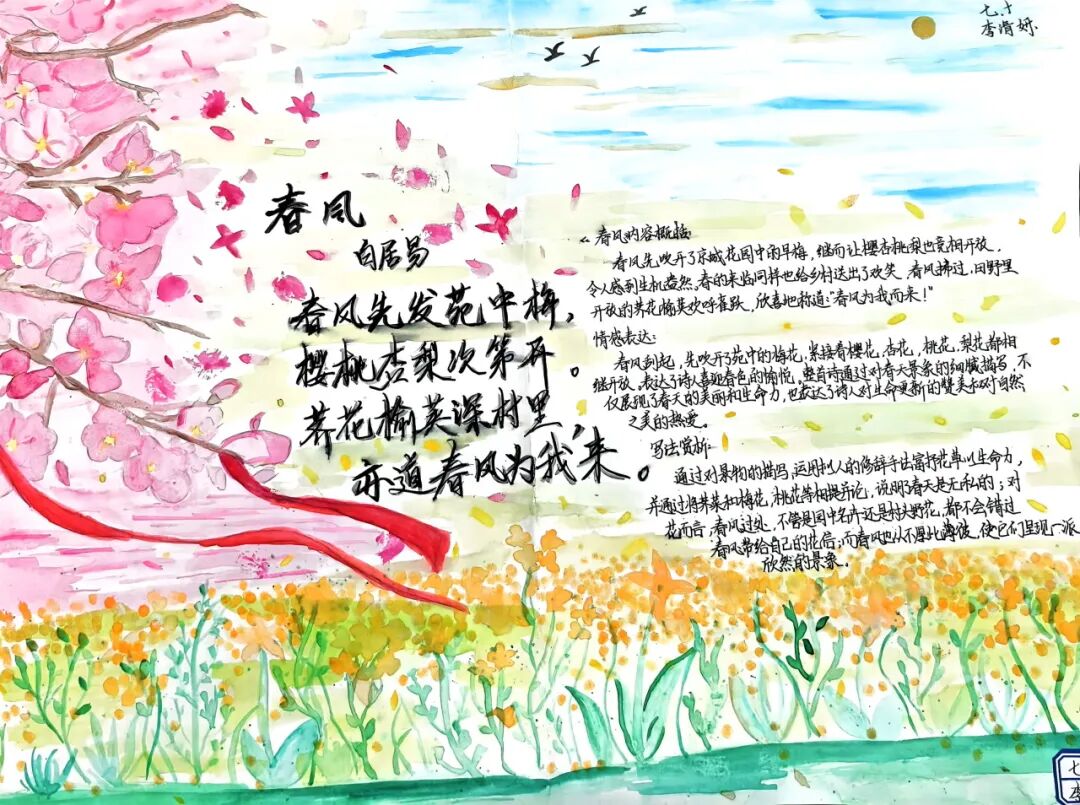 七.十
春风
白居易
春风先发苑中梅，
樱桃杏梨次第开。
荠花榆荚深村里，
亦道春风为我来。
春风内容概括：
春风先吹开了京城花园中的早梅，继而让樱杏桃梨也竞相开放，
令人感到生机盎然。春的来临同样也给乡村送出了欢笑，春风拂过，田野里
开放的荠花榆荚欢呼雀跃，欣喜地称道："春风为我而来！"
情感表达：
春风到起，先吹开了苑中的梅花，紧接着樱花，杏花，桃花，梨花都相
继开放，表达了诗人喜迎春色的愉悦，整首诗通过对春天景象的细腻描写，不
仅展现了春天的美丽和生命力，也表达了诗人对生命更新的赞美和对自然
之美的热爱。
写法赏析：
通过对景物的描写，运用拟人的修辞手法富予花草以生命力，
并通过将荠菜和梅花，桃花等相提并论，说明了春天是无私的；对
花而言，春风过处，不管是园中名卉还是村头野花，都不会错过
春风带给自己的花信；而春风也从不厚此薄彼，使它们呈现一派
欣然的景象。
七
李